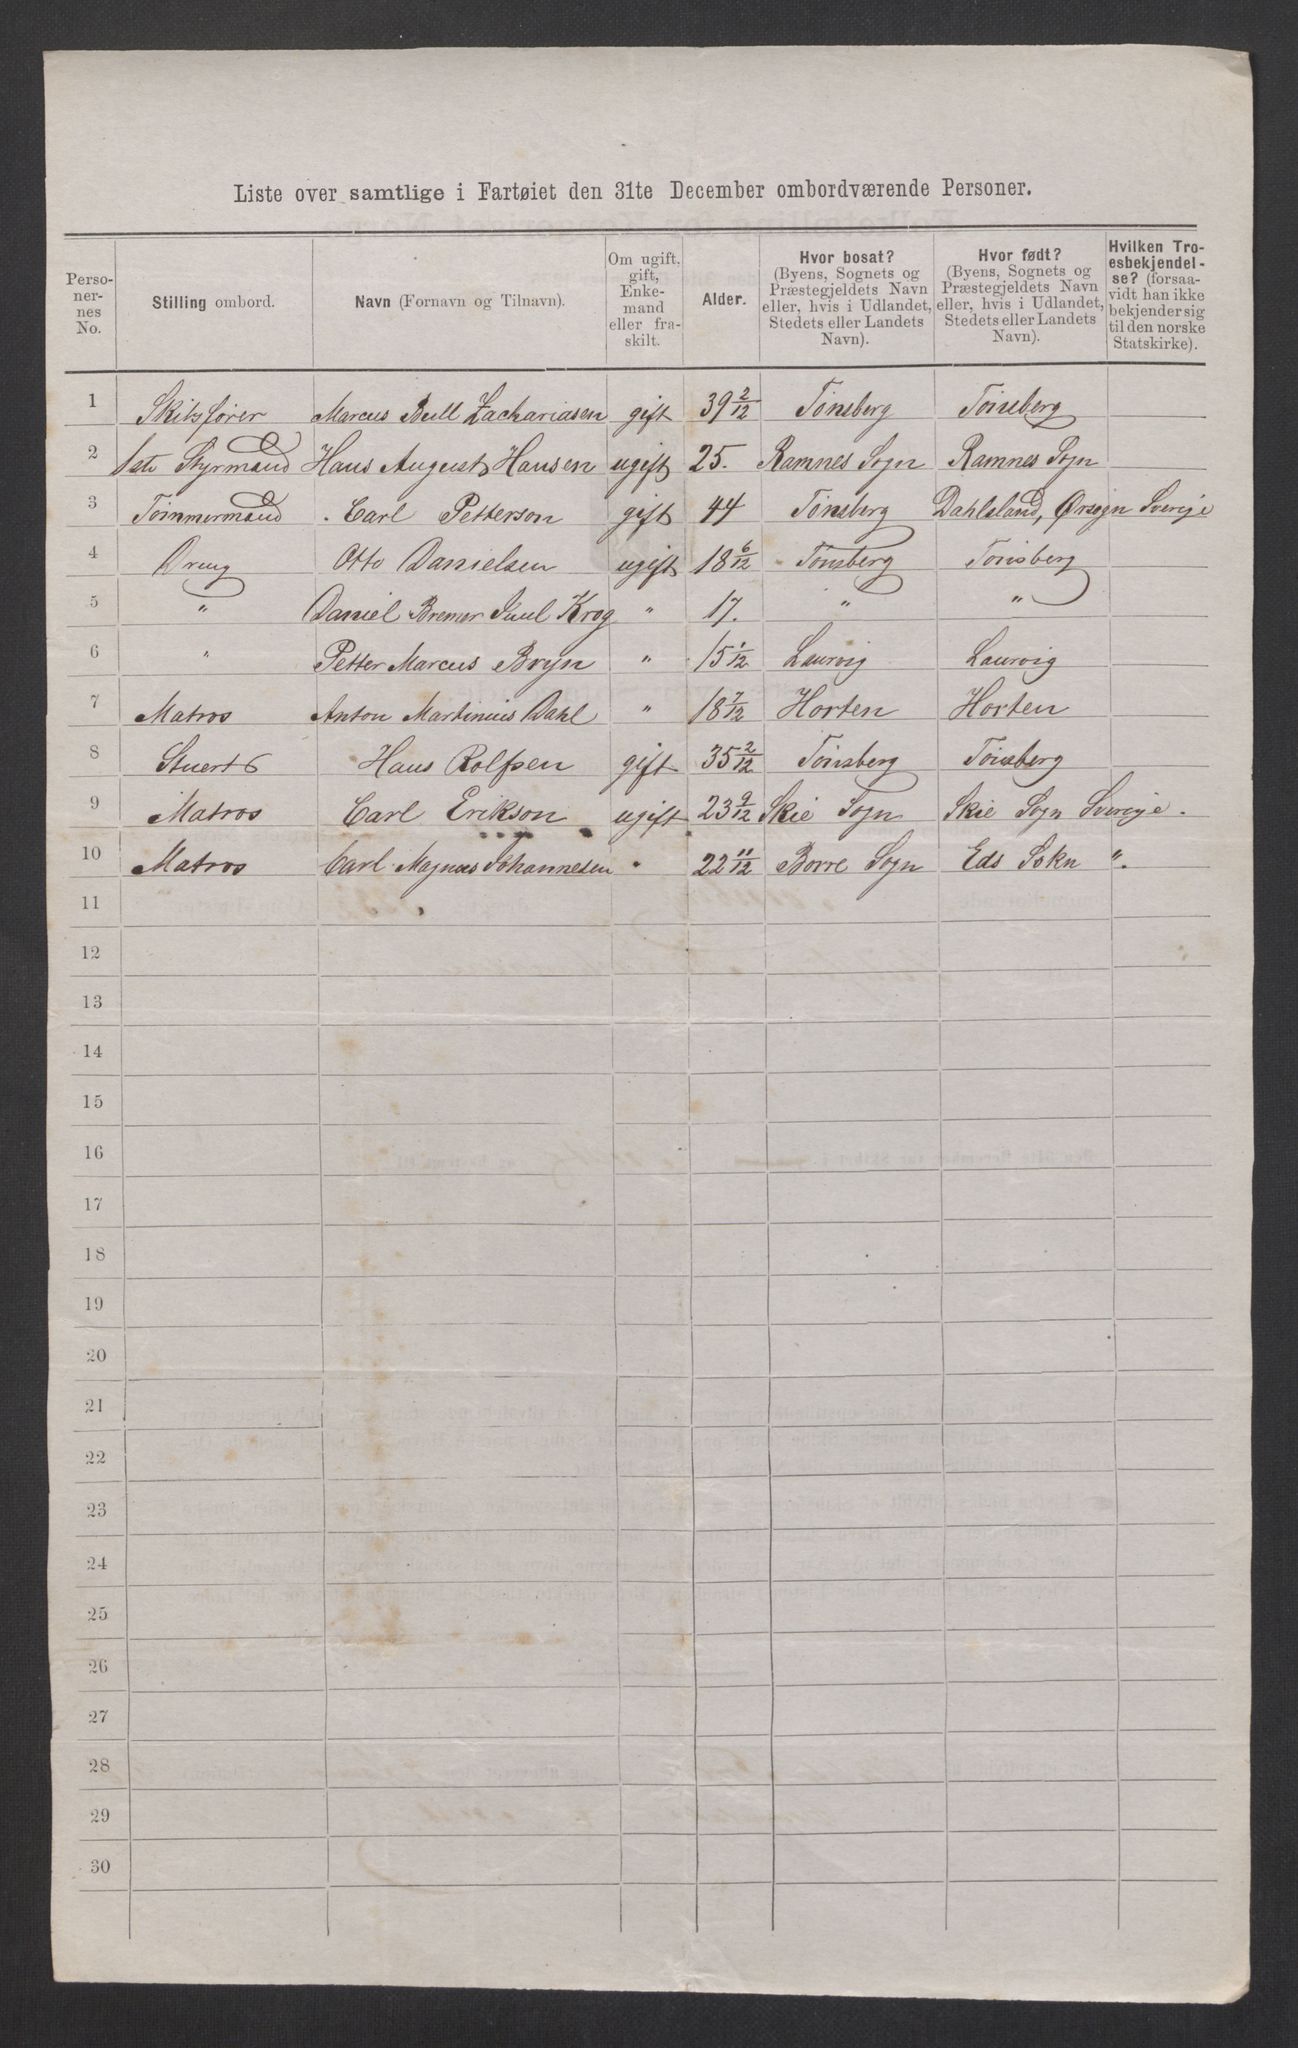 Liste over samtlige i Fartøiet den 31te December ombordværende Personer.
Perso-ner-nes No. | Stilling ombord. | Navn (Fornavn og Tilnavn). | Om ugift, gift, Enke-mand eller fra-skilt. | Alder. | Hvor bosat? (Byens, Sognets og Præstegjeldets Navn eller, hvis i Udlandet, Stedets eller Landets Navn). | Hvor født? (Byens, Sognets og Præstegjeldets Navn eller, hvis i Udlandet, Stedets eller Landets Navn). | Hvilken Tro-esbekjendel-se? (forsaa-vidt han ikke bekjender sig til den norske Statskirke).
1 Skibsfører Marcus Bull Zachariasen gift 39 2/12 Tønsberg Tønsberg
2 1ste Styrmand Hans August Hansen ugift 25. Ramnes Sogn Ramnes Sogn
3 Tømmermand Carl Petterson gift 44 Tønsberg Dahlsland, Ørsogn Sverige
4 Dreng Otto Danielsen ugift 18 6/12 Tønsberg Tønsberg
5 " Daniel Bremer Juul Krog " 17. " "
6 " Petter Marcus Bryn " 15 1/12 Laurvig Laurvig
7 Matros Anton Martinius Dahl " 18 7/12 Horten Horten
8 Stuert Hans Rolfsen gift 35 2/12 Tønsberg Tønsberg
9 Matros Carl Erikson ugift 23 9/12 Skie Sogn Skie Sogn Sverige.
10 Matros Carl Magnus Johannesen " 22 11/12 Borre Sogn Eds Sokn ".
11
12
13
14
15
16
17
18
19
20
21
22
23
24
25
26
27
28
29
30